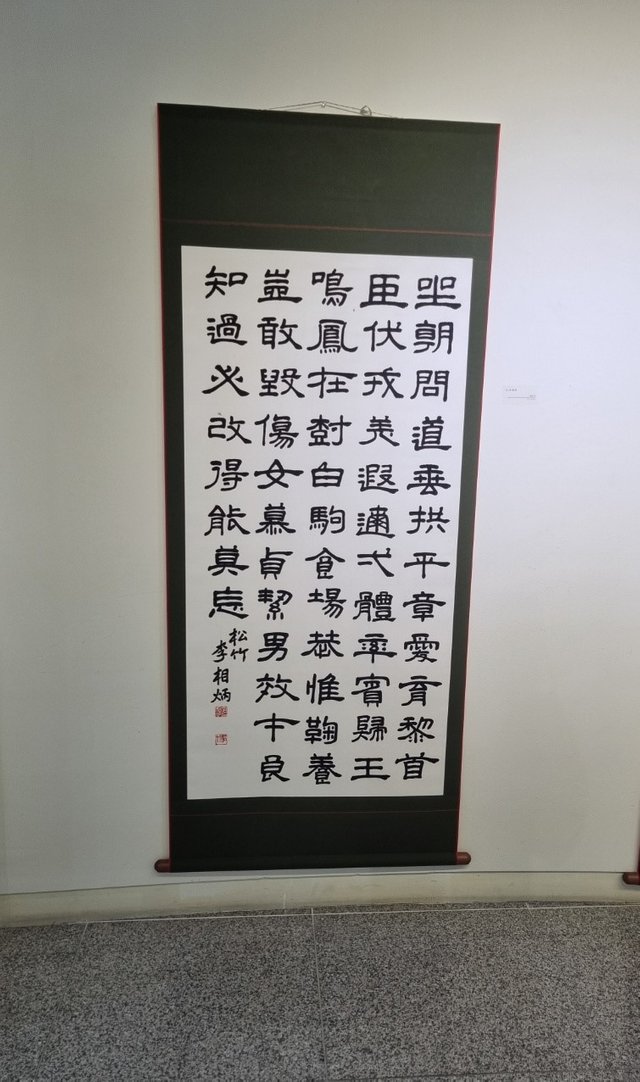 坐朝問道垂拱平章愛育黎首
臣伏戎羌遐邇弌體率賓歸王
鳴鳳在尌白駒食場恭惟鞠養
豈敢毀傷女慕貞絜男效才良
知過必改得能莫忘
松竹
李相炳